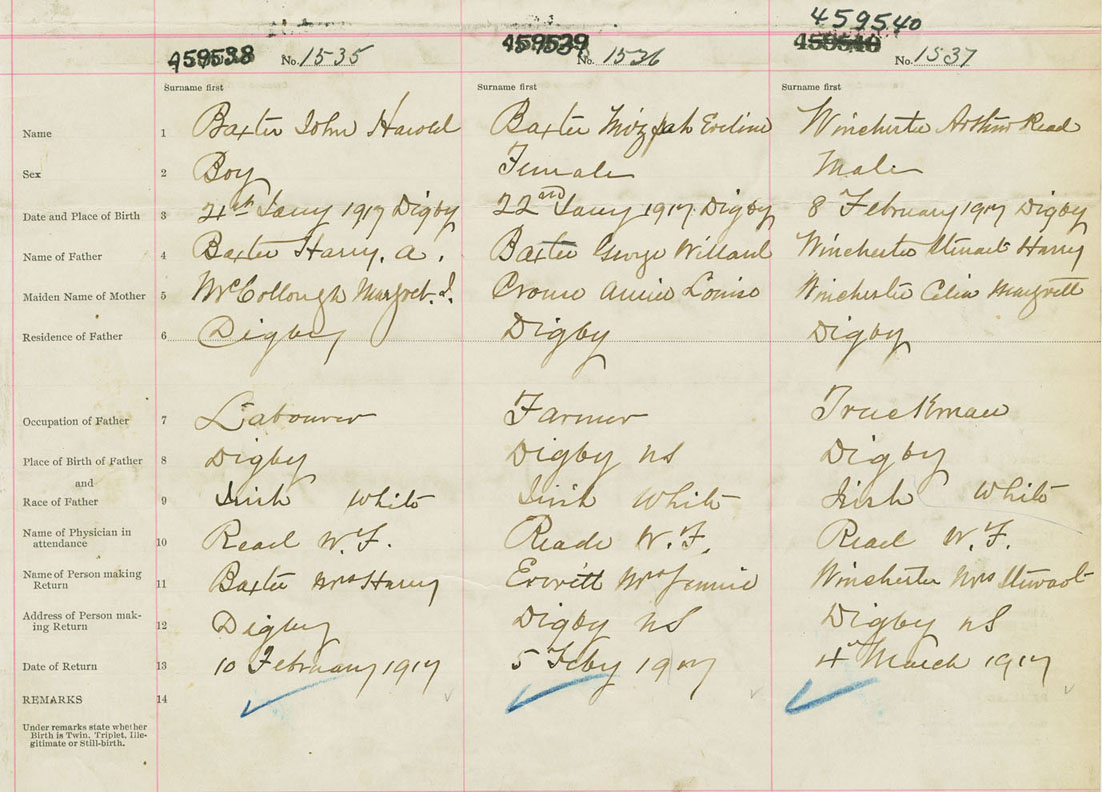 459540
459538 No. 1535 459539 No. 1536 459540 No. 1537
Surname first Surname first Surname first
Name 1 Baxter John Harold Baxter Mizpah Eveline Winchester Arthur Read
Sex 2 Boy Female Male
Date and Place of Birth 3 Jany 1917 Digby 22nd Jany 1917 Digby 8 February 1917 Digby
Name of Father 4 Baxter Harry. A. Baxter George Willard Winchester Stuart Harry
Maiden Name of Mother 5 McCollough Margret. I. Annie Louise Winchester Celia Margrett
Residence of Father 6 Digby Digby Digby
Occupation of Father 7 Labourer Farmer Truckman
Place of Birth of Father 8 Digby Digby NS Digby
and
Race of Father 9 Irish White Irish White Irish White
Name of Physician in
attendance 10 Read W. F. Reade W. F. Read W. F.
Name of Person making
Return 11 Baxter Mrs Harry Everitt Mrs Jennie Winchester Mrs Stewart
Address of Person mak-
ing Return 12 Digby Digby NS Digby NS
Date of Return 13 10 February 1917 5 Feby 1917 4th March 1917
REMARKS 14
Under remarks state whether
Birth is Twin, Triplet, Ille-
gitimate or Still-birth.